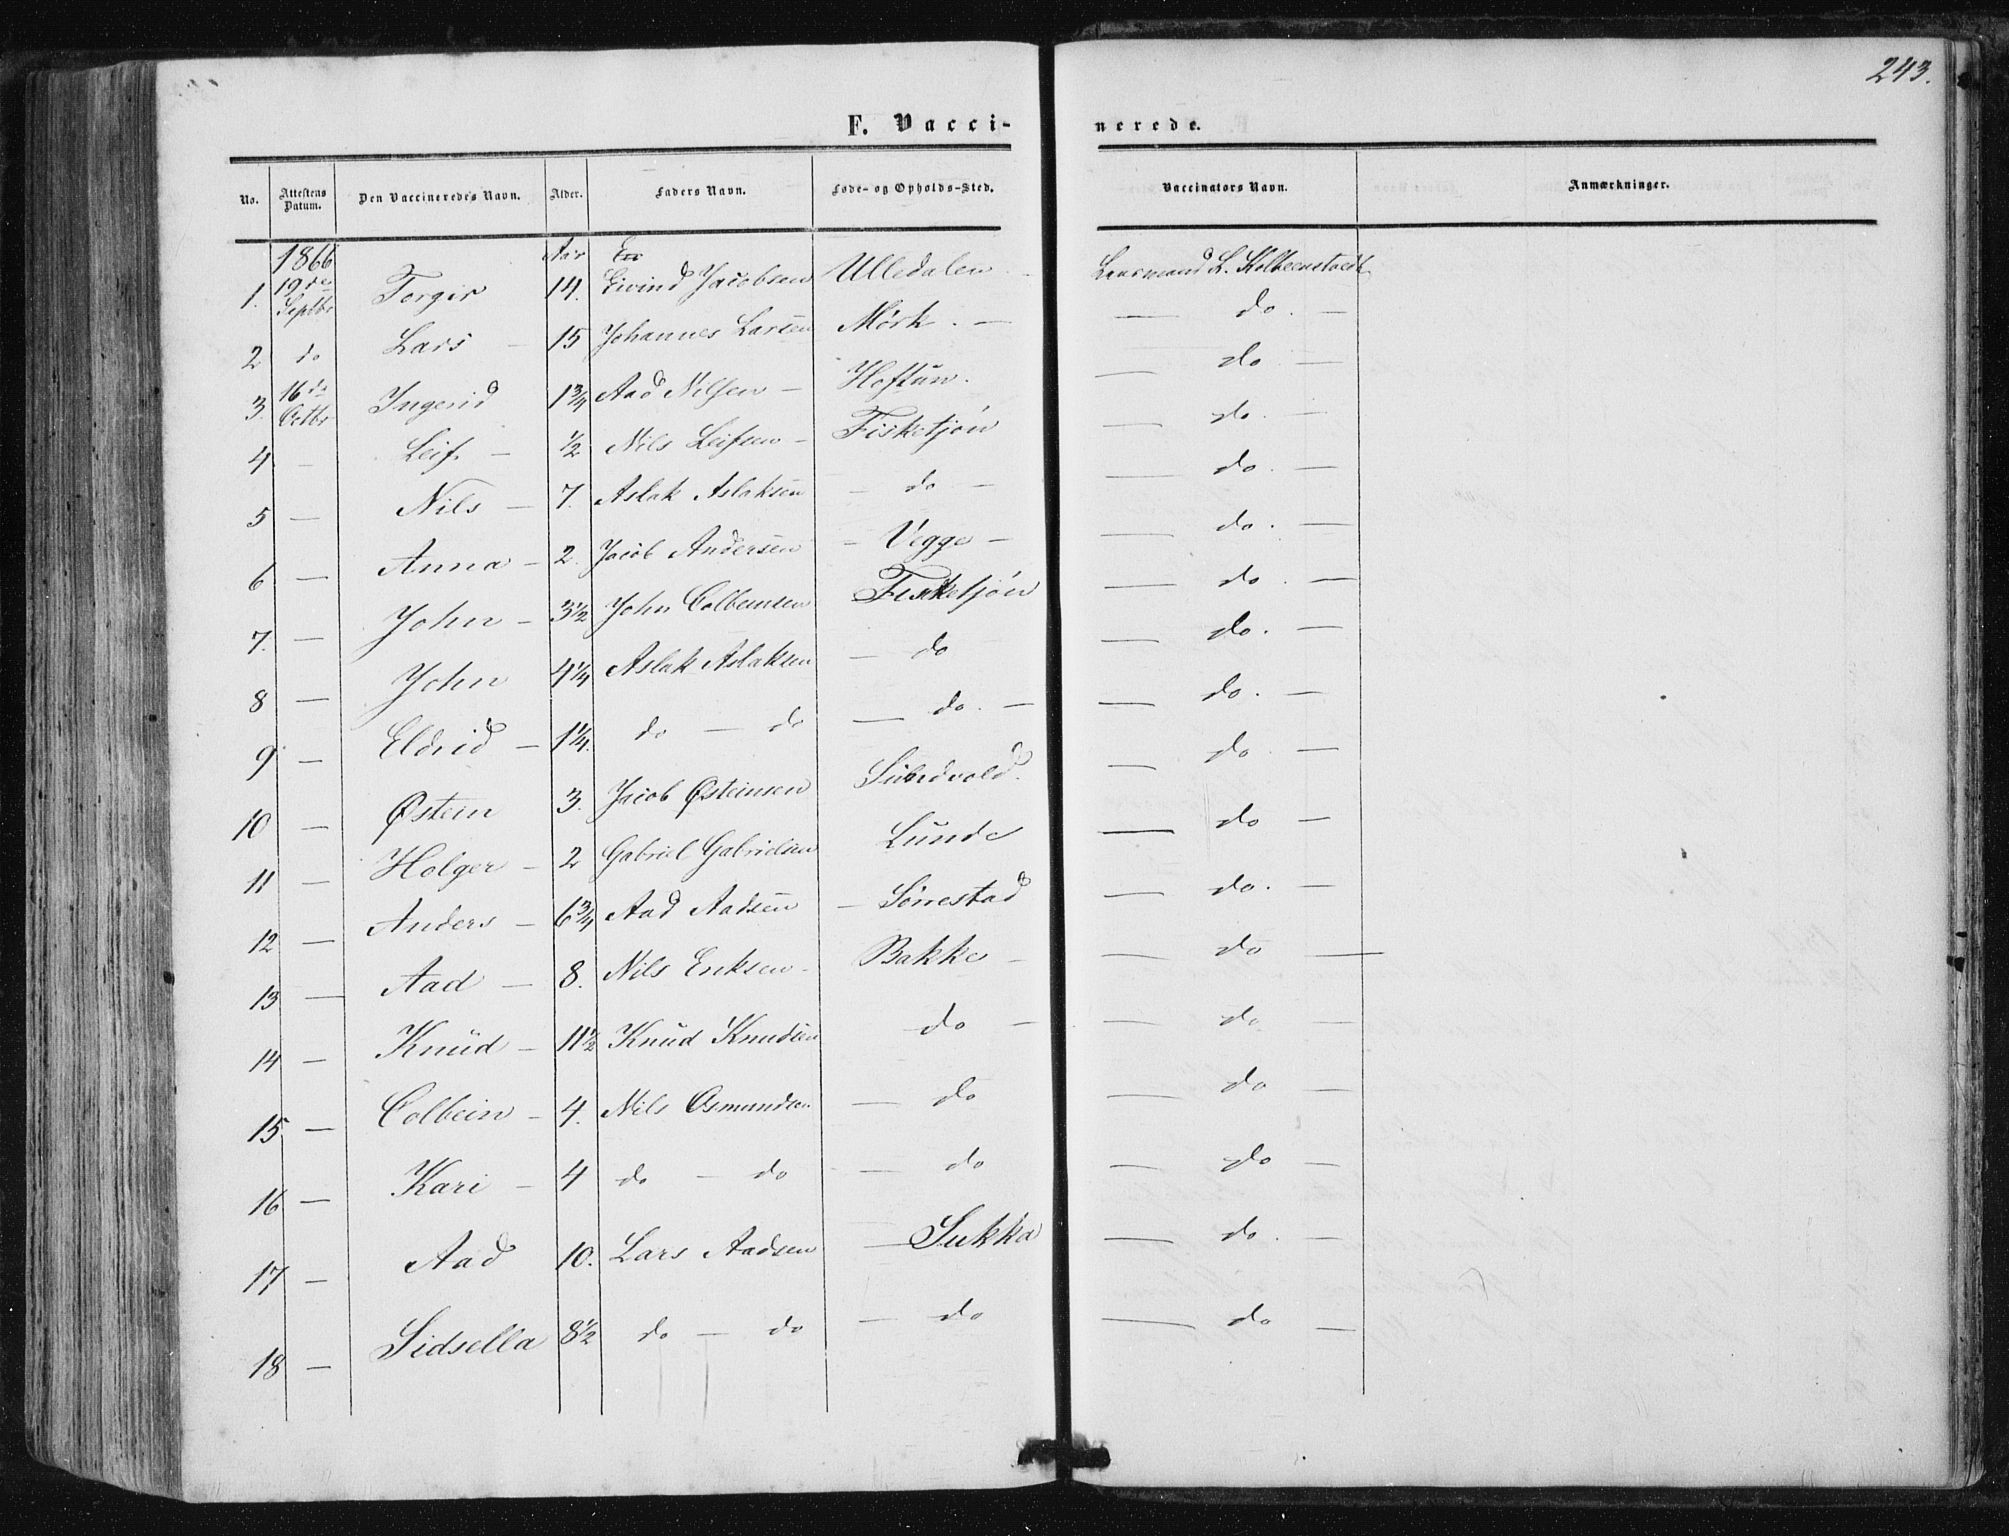 243.
F. Vacci-nerede.
No. Attestens Datum. Den Vaccineredes Navn. Alder. Faders Navn. Føde- og Opholds-Sted. Vaccinators Navn. Anmærkninger.
1866 Aar
1. 19de Septbr Torgir 14. Eivind Jacobsen Ulledalen Lensmand L. Kolbeenstvedt
2 do Lars 15 Johannes Larsen Mörk do.
3. 16de Octbr Ingerid 1 3/4 Aad Nilsen Hoftun. do
4 — Leif 1/2 Nils Leifsen Fisketjón do
5 — Nils 7. Aslak Aslaksen do do
6 — Anna 2. Jacob Andersen Vegge do.
7. — John 3 1/2 John Colbeinsen Fisketjón do
8 — John 4 1/4 Aslak Aslaksen do do.
9 — Eldrid 1 1/4. do — do do. do.
10 — Østein 3. Jacob Østeinsen Sundvold. do
11 — Holger 2 Gabriel Gabrielsen Lunde do
12 — Anders 6 3/4 Aad Aadsen Sönestad do.
13 — Aad 8. Nils Eriksen Bakke do
14 — Knud 11 1/2 Knud Knudsen do do
15 — Colbein 4. Nils Osmundsen do do
16 — Kari 4 do — do do do
17 — Aad 10. Lars Aadsen Sukka do.
18 — Sidsella 8 1/2 do — do do do